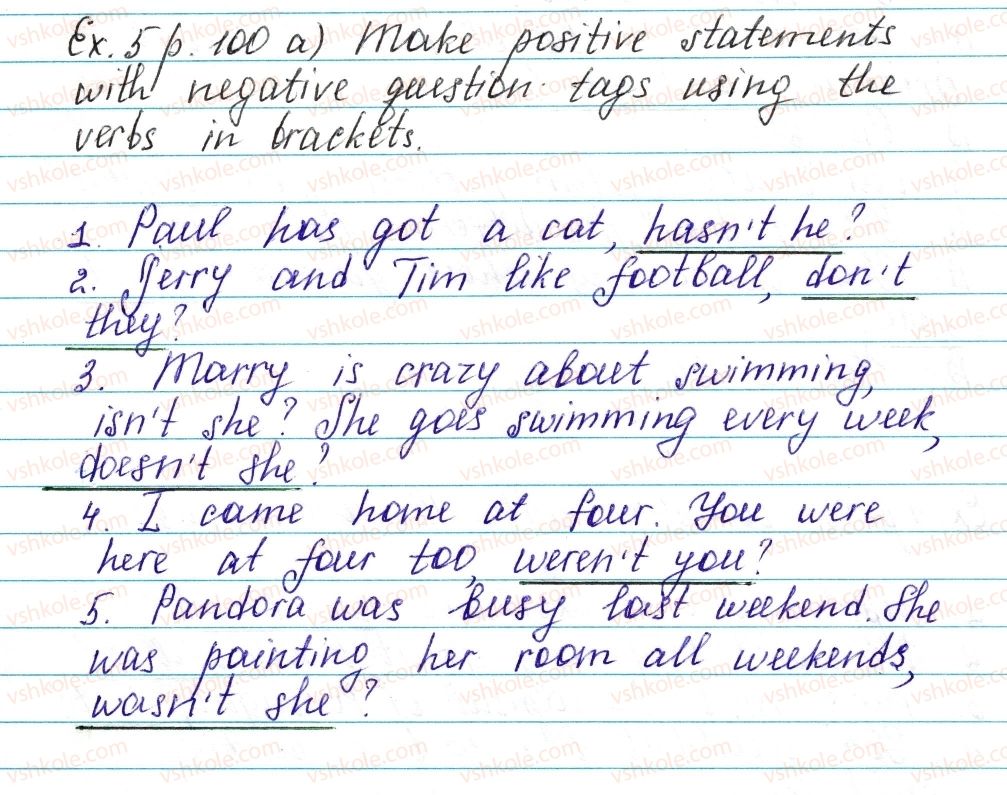 Ex. 5 p. 100 a) Make positive statements
with negative question tags using the
verbs in brackets.
1. Paul has got a cat, hasn't he?
2. Jerry and Tim like football, don't
they?
3. Marry is crazy about swimming,
isn't she? She goes swimming every week,
doesn't she?
4. I came home at four. You were
here at four too, weren't you?
5. Pandora was busy last weekend. She
was painting her room all weekends,
wasn't she?
vshkole.com